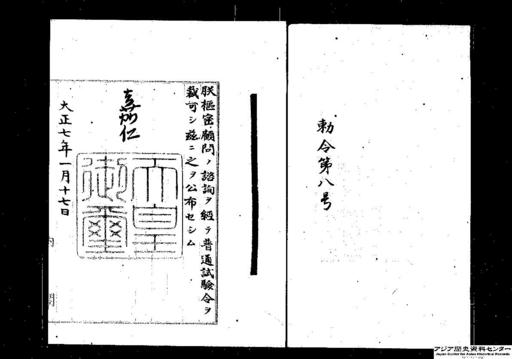 勅令第八号
朕枢密顧問ノ諮詢ヲ経テ普通試験令ヲ
裁可シ茲ニ之ヲ公布セシム
嘉仁
天皇御璽
大正七年一月十七日
内
閣
アジア歴史資料センター
Japan Center for Asian Historical Records